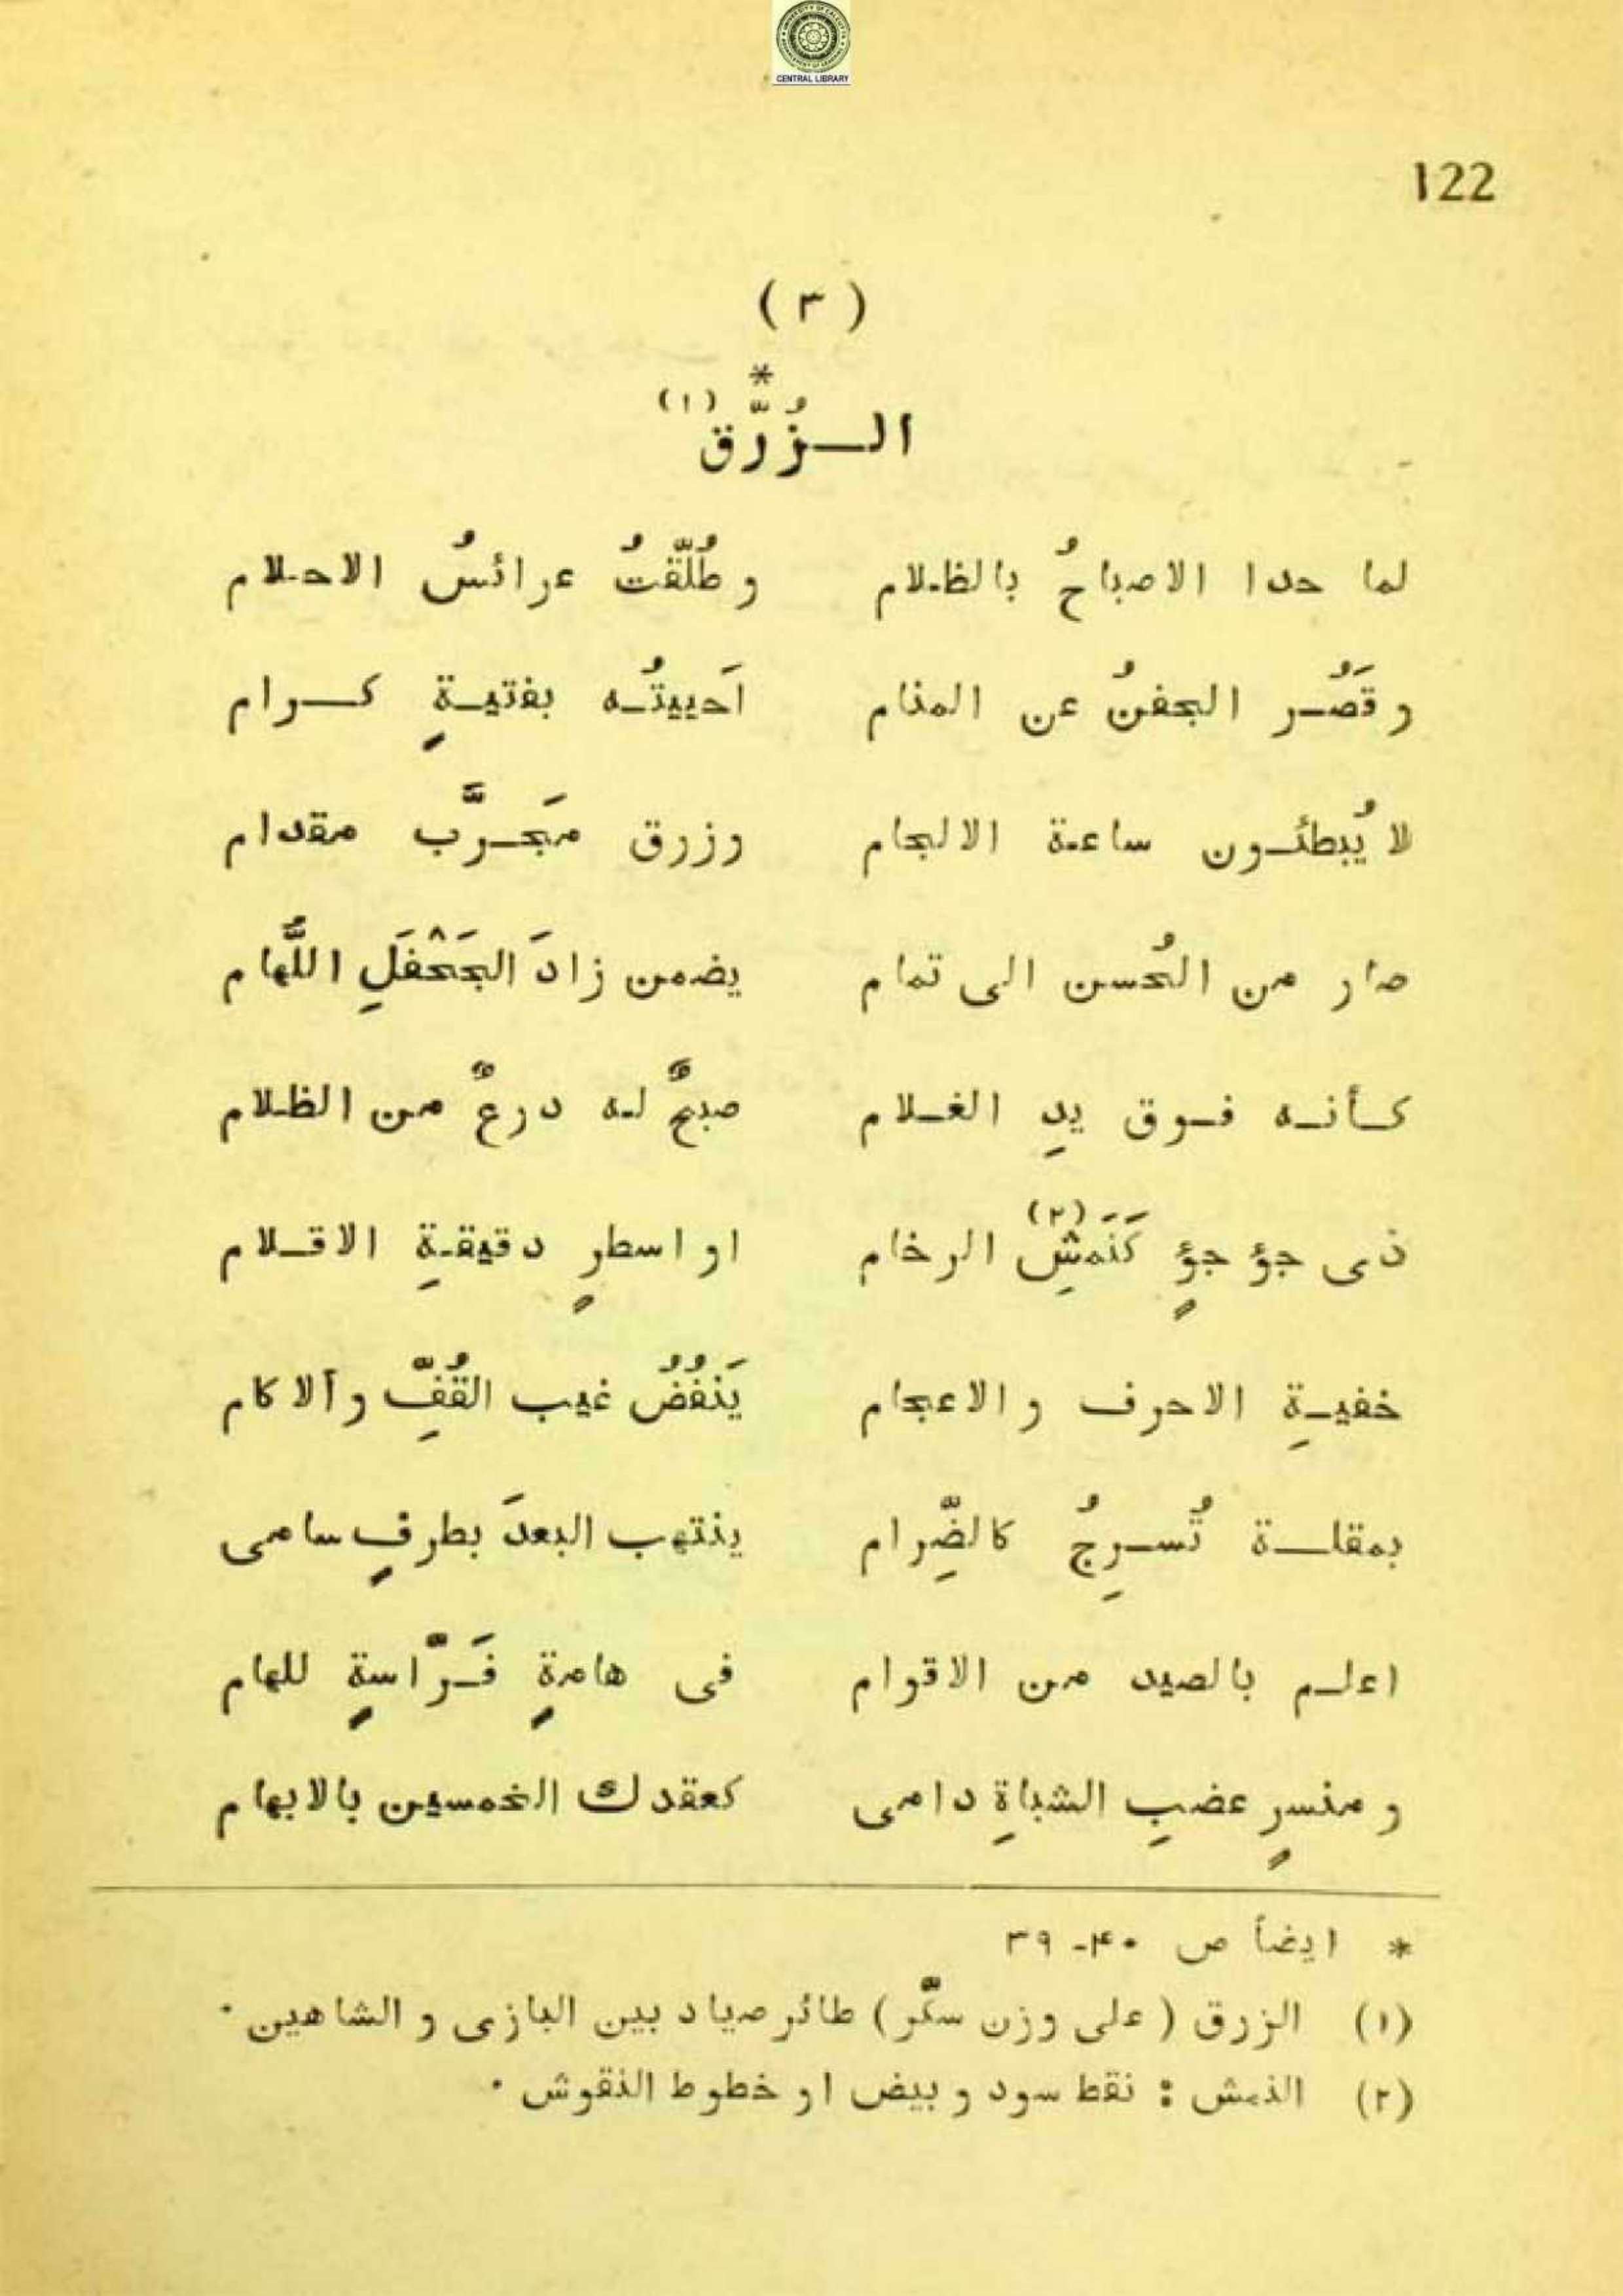 CENTRAL LIBRARY
122
( ٣ )
*
الـــزُرَّق (١)
لما حدا الاصباحُ بالظلام وطُلّقتُ عرائسُ الاحلام
وقَصُر الجفنُ عن المنام اَحييتُه بفتيةٍ كرام
لا يُبطئون ساعة الالجام وزرق مَجرَّب مقدام
صار من الحُسن الى تمام يضمن زادَ الجَحْفَلِ اللُّهام
كأنه فوق يدِ الغلام صبحٌ له درعٌ من الظلام
ذى جؤجؤٍ كَنَمشِ (٢) الرخام او اسطرٍ دقيقةِ الاقلام
خفيةِ الاحرف والاعجام يَنفُضُ غيب القُفِّ والاكام
بمقلة تُسرِجُ كالضِّرام ينتهب البعدَ بطرفٍ سامى
اعلم بالصيد من الاقوام فى هامةٍ فَرّاسةٍ للهام
ومنسرٍ عضبِ الشباةِ دامى كعقدك الخمسين بالابهام
* ايضاً ص ٤٠-٣٩
(١) الزرق (على وزن سكّر) طائر صياد بين البازى و الشاهين ٠
(٢) النمش : نقط سود و بيض او خطوط النقوش ٠